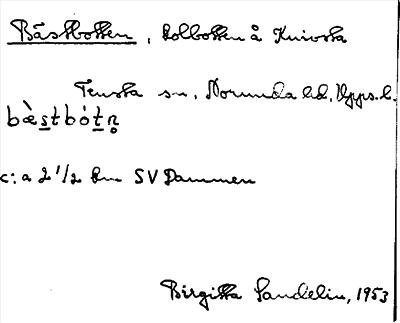 Bästbotten, kolbotten å Knivsta
Tensta sn, Norunda hd, Upps. l.
bæ̀stbót̠n̥
c:a 2 1/2 km SV Dammen
Birgitta Sandelin, 1953